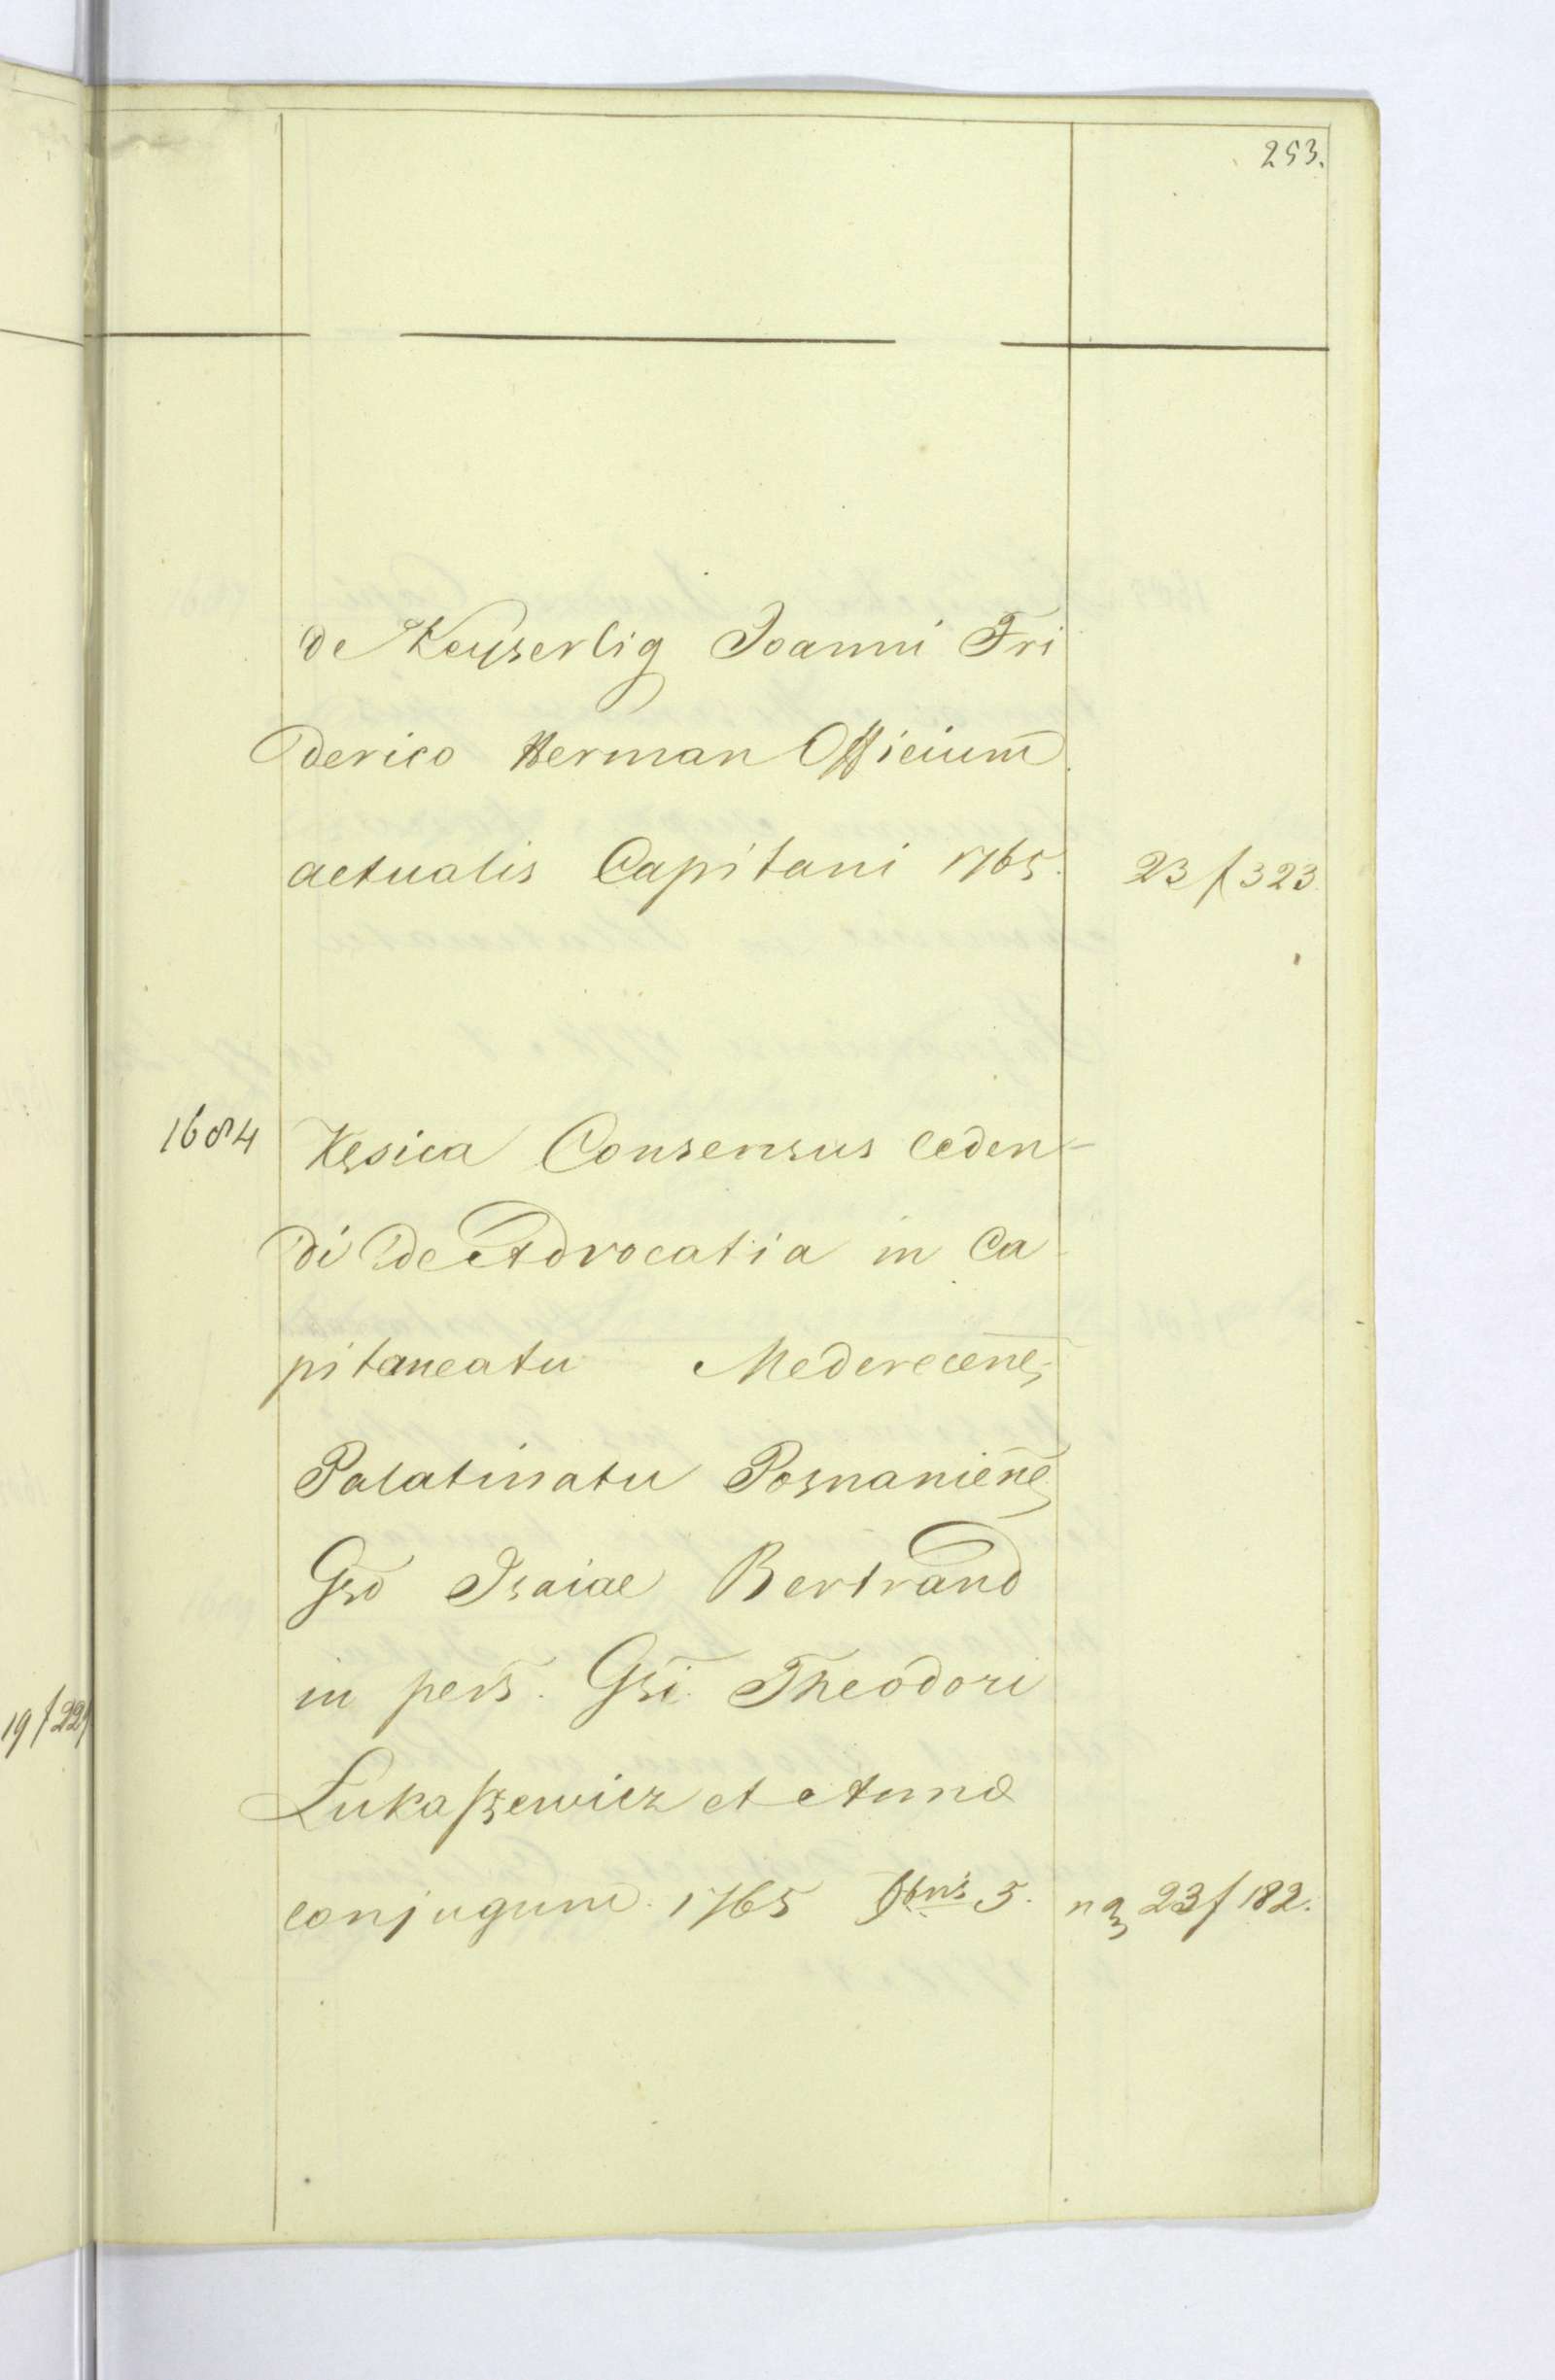 253.
de Keyserlig Joanni Fri
derico Herman Officium
actualis Capitani 1765. 23 f 323
1684 Kęsica Consensus Ceden-
di de Advocatia in Ca
pitaneatu Mederecene
Palatinatu Posnaniene
Gso Isaiae Bertrand
in pers. Gsi Theodori
Lukaszewicz et Annæ
conjugum 1765 9bris 5. 23 f 182.
19 f 22